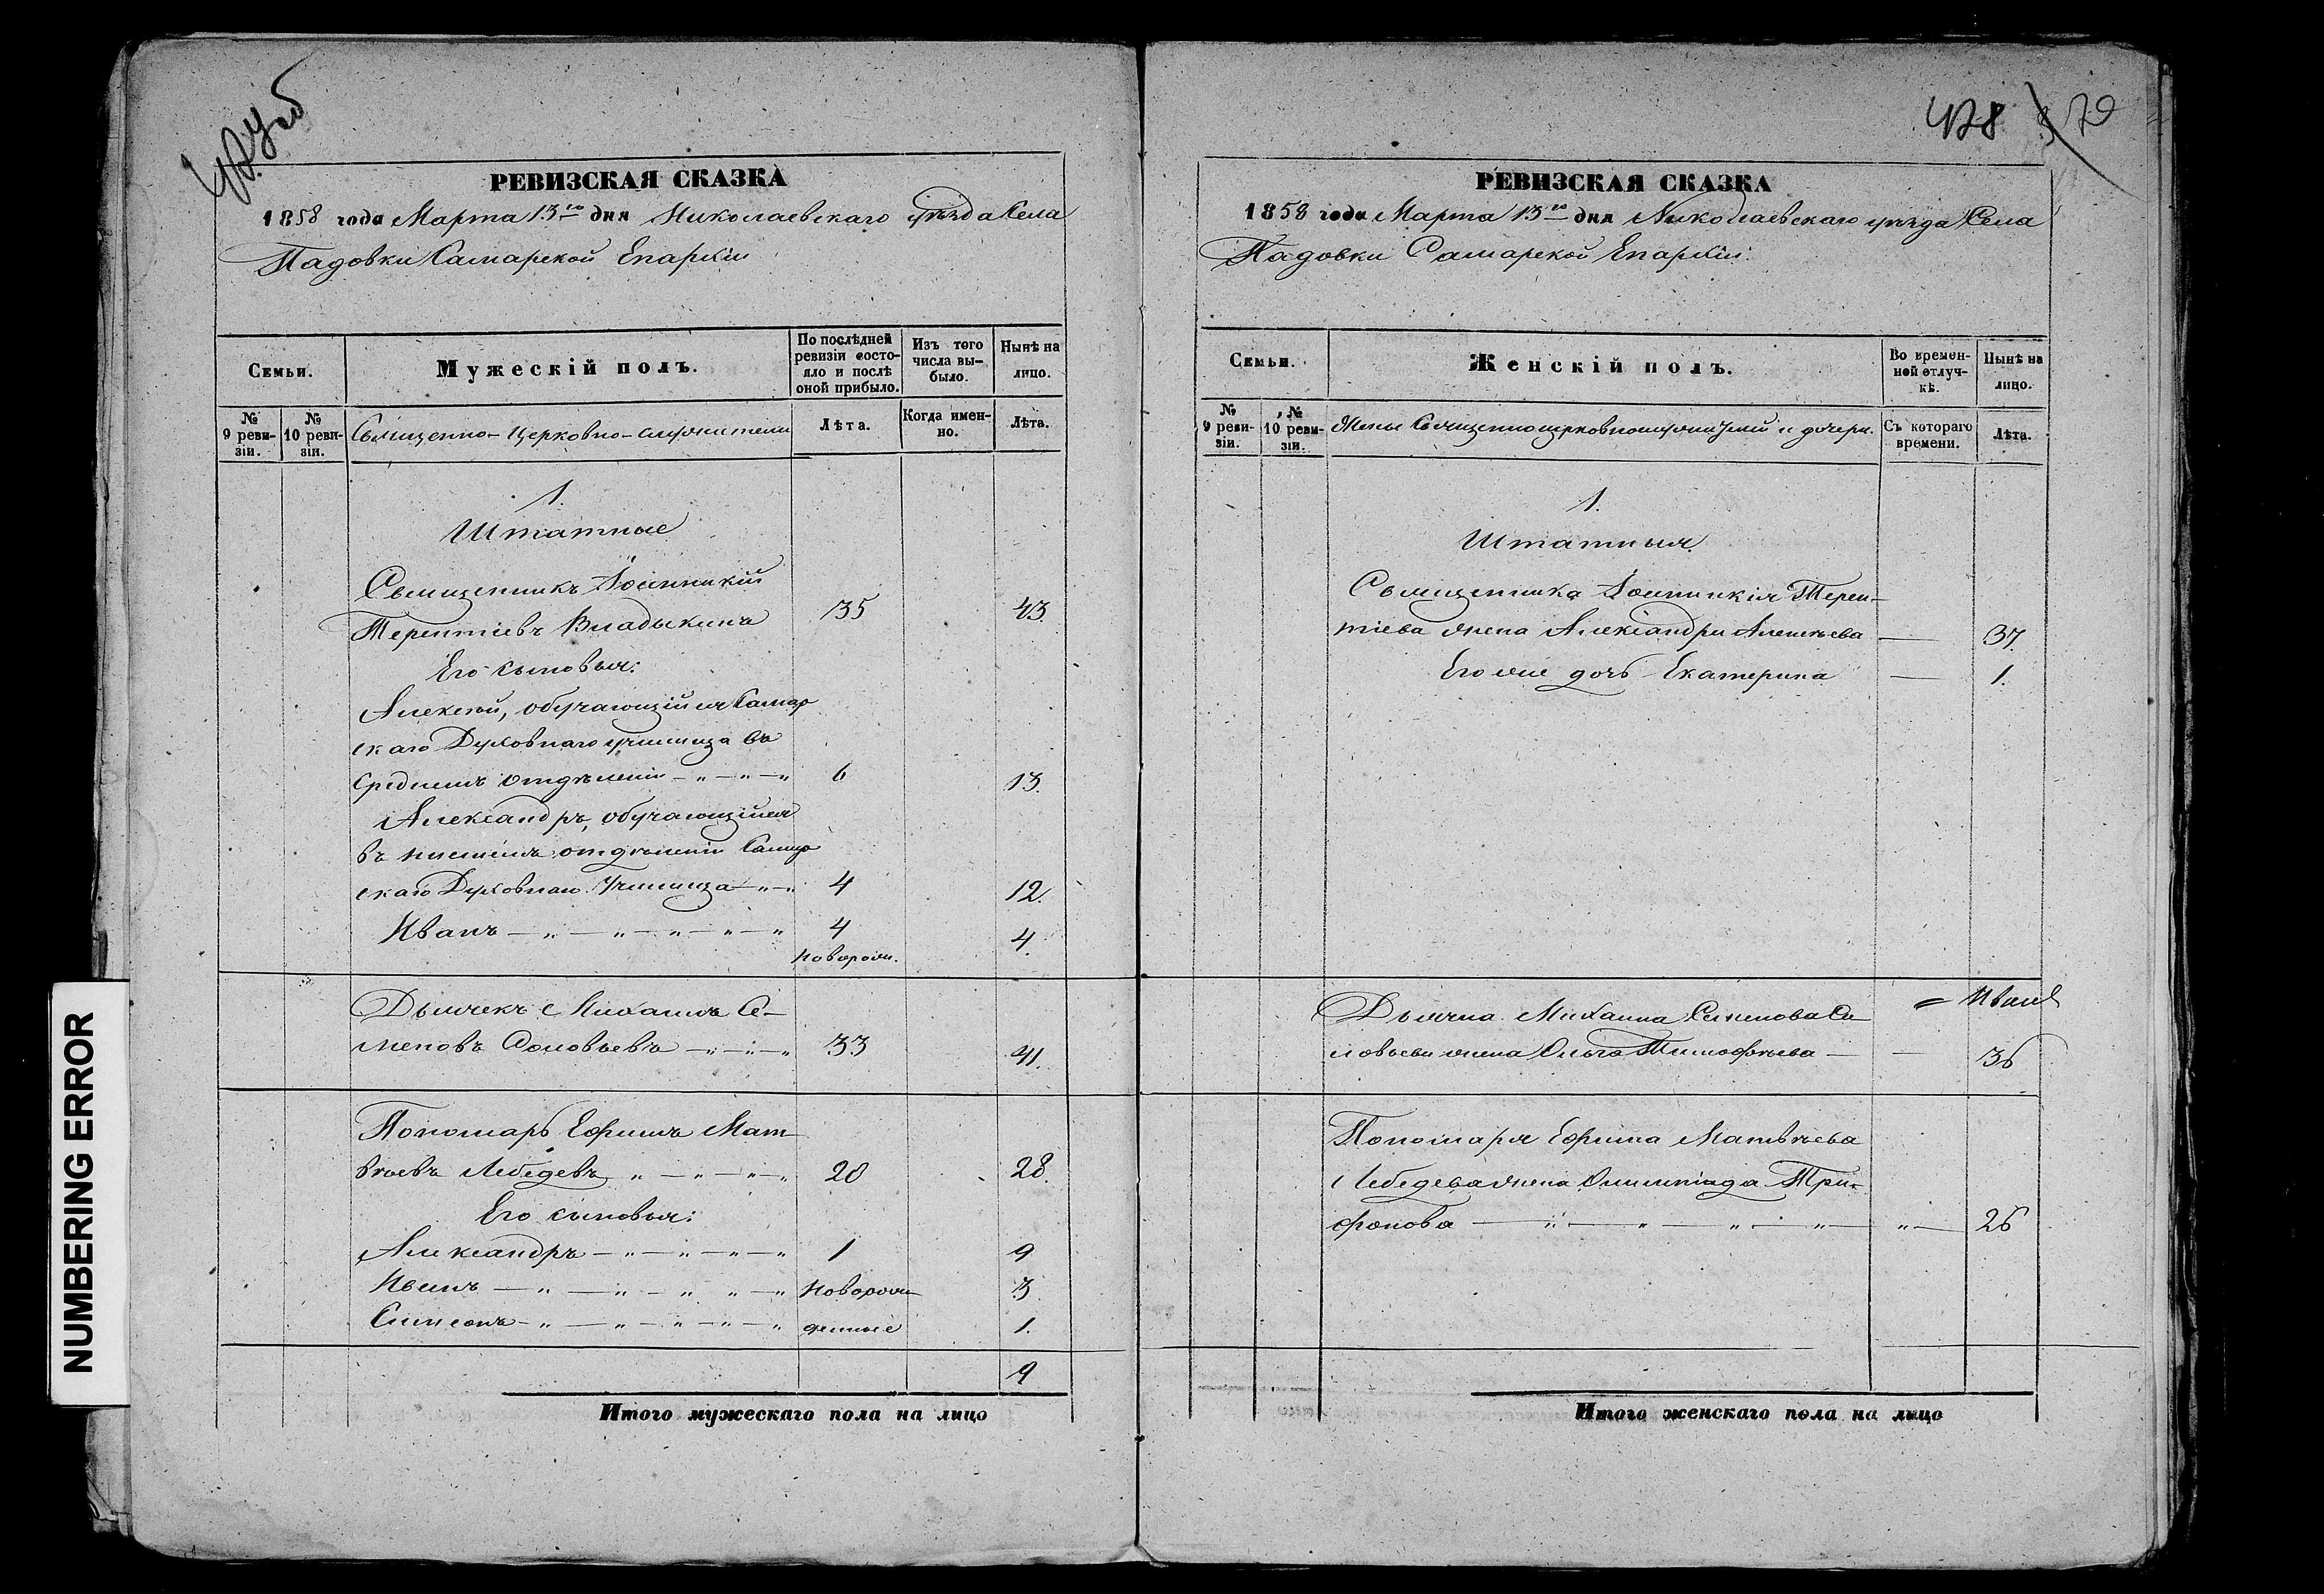 РЕВИЗСКАЯ СКАЗКА
1858 года Марта 13го дня Николаевскаго уѣзда Села
Падовки Самарской Епархіи
Семьи.
Мужескій полъ.
По послѣдней ревизіи состояло и послѣ оной прибыло.
Изъ того числа выбыло.
Нынѣ на лицо.
№ 9 ревизіи.
№ 10 ревизіи.
Священно-церковно-служители
Лѣта.
Когда именно.
Лѣта.
1.
Штатные
Священникъ Іоанникій
Терентіевъ Владыкинъ 35 43.
Его сыновья:
Алексѣй, обучающійся Самар
скаго Духовнаго училища въ
Среднемъ отдѣленіи 6 13.
Александръ, обучающійся
въ нисшемъ отдѣленіи Самар
скаго Духовнаго Училища 4 12.
Иванъ 4 4.
новорож.
Дьячекъ Михаилъ Се-
меновъ Соловьевъ 33 41.
Пономарь Ефимъ Мат-
вѣевъ Лебедевъ 20 28.
Его сыновья:
Александръ 1 9
Иванъ новорож 3.
Симеонъ денные 1.
9
Итого мужескаго пола на лицо
478
РЕВИЗСКАЯ СКАЗКА
1858 года Марта 13го дня Николаевскаго уѣзда Села
Падовки Самарской Епархіи.
Семьи.
Женскій полъ.
Во временной отлучкѣ.
Нынѣ на лицо.
№ 9 ревизіи.
№ 10 ревизіи.
Жены Священноцерковнослужителей и дочери.
Съ котораго времени.
Лѣта.
1.
Штатныя.
Священника Іоанникія Терен-
тіева жена Александра Алексѣева — 37.
Его же дочь Екатерина — 1.
Дьячка Михаила Семенова Со
ловьева жена Ольга Тимофѣева — 36
Пономаря Ефима Матвѣева
Лебедева жена Олимпіада Три-
фонова 26
Итого женскаго пола на лицо
NUMBERING ERROR